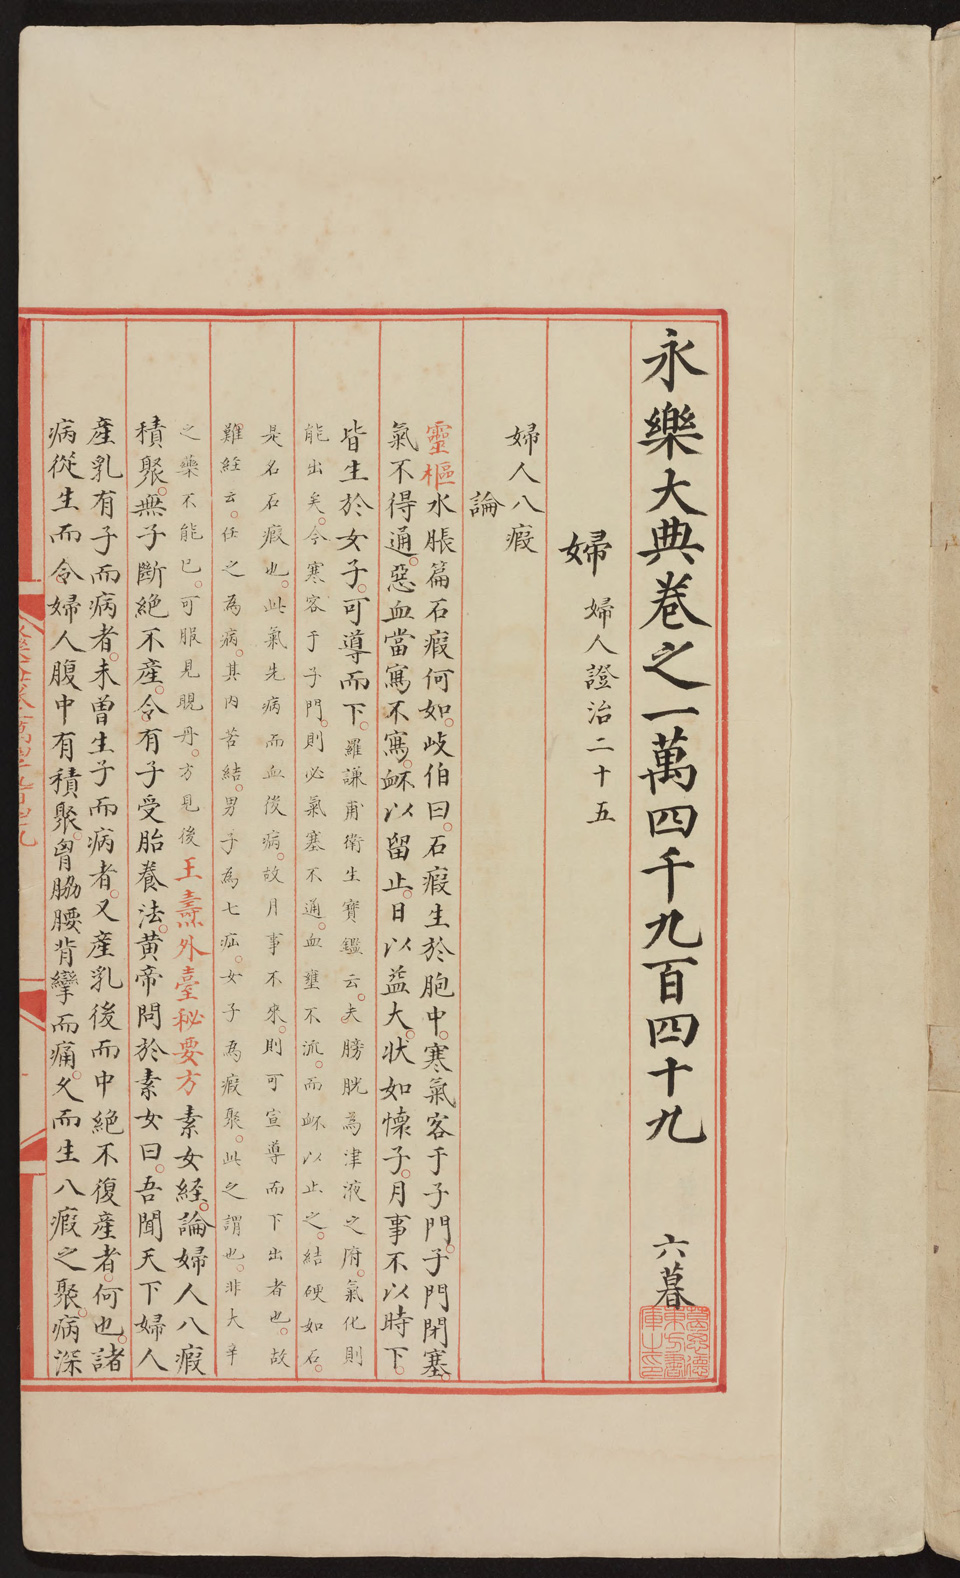 永樂大典卷之一萬四千九百四十九 六暮
婦 婦人證治二十五
婦人八瘕
論
靈樞水脹篇石瘕何如。岐伯曰。石瘕生於胞中。寒氣客于子門。子門閉塞。
氣不得通。惡血當寫不寫。衃以留止。日以益大。狀如懷子。月事不以時下。
皆生於女子。可導而下。羅謙甫衛生寶鑑云。夫膀胱為津液之府。氣化則
能出矣。今寒客于子門。則必氣塞不通。血壅不流。而衃以止之。結硬如石。
是名石瘕也。此氣先病而血後病。故月事不來。則可宣導而下出者也。故
難經云。任之為病。其內苦結。男子為七疝。女子為瘕聚。此之謂也。非大辛
之藥不能已。可服見晛丹。方見後王燾外臺秘要方素女經。論婦人八瘕
積聚。無子斷絕不產。令有子受胎養法。黃帝問於素女曰。吾聞天下婦人
產乳有子而病者。未曾生子而病者。又產乳後而中絕不復產者。何也。諸
病從生而令婦人腹中有積聚。胷脇腰背攣而痛。久而生八瘕之聚。病深